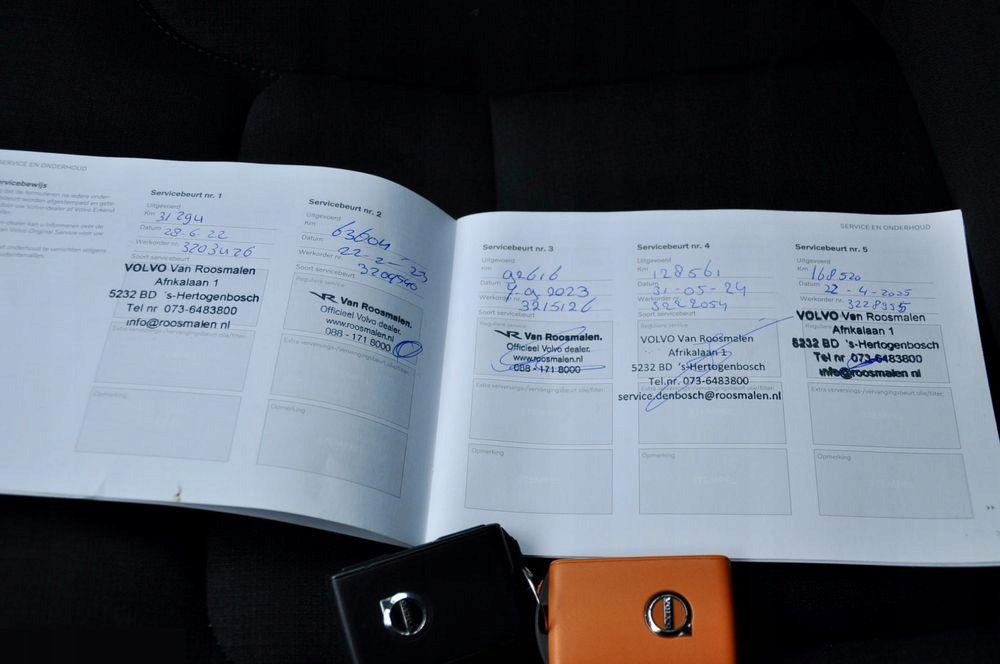 SERVICE EN ONDERHOUD
Servicebeurt nr. 1
Uitgevoerd
Km 31294
Datum 28-6-22
Werkorder nr. 3203426
Soort servicebeurt
VOLVO Van Roosmalen
Afrikalaan 1
5232 BD 's-Hertogenbosch
Tel nr 073-6483800
info@roosmalen nl
Opmerking
Servicebeurt nr. 2
Uitgevoerd
Km 63604
Datum 22-2-23
Werkorder nr. 3209540
Soort servicebeurt
Reguliere service
VR Van Roosmalen.
Officieel Volvo dealer.
www.roosmalen.nl
088 - 171 8000
Opmerking
SERVICE EN ONDERHOUD
Servicebeurt nr. 3
Uitgevoerd
Km 92616
Datum 7-9 2023
Werkorder nr. 3215126
Soort servicebeurt
Reguliere service
VR Van Roosmalen.
Officieel Volvo dealer.
www.roosmalen.nl
088 - 171 8000
Opmerking
Servicebeurt nr. 4
Uitgevoerd
Km 128561
Datum 31-05-24
Werkorder nr. 3222054
Soort servicebeurt
Reguliere service
VOLVO Van Roosmalen
Afrikalaan 1
5232 BD 's-Hertogenbosch
Tel.nr. 073-6483800
service.denbosch@roosmalen.nl
Opmerking
Servicebeurt nr. 5
Uitgevoerd
Km 168520
Datum 22-4-2025
Werkorder nr. 3228935
VOLVO Van Roosmalen
Afrikalaan 1
5232 BD 's-Hertogenbosch
Tel nr 073-6483800
info@roosmalen nl
Opmerking
VOLVO